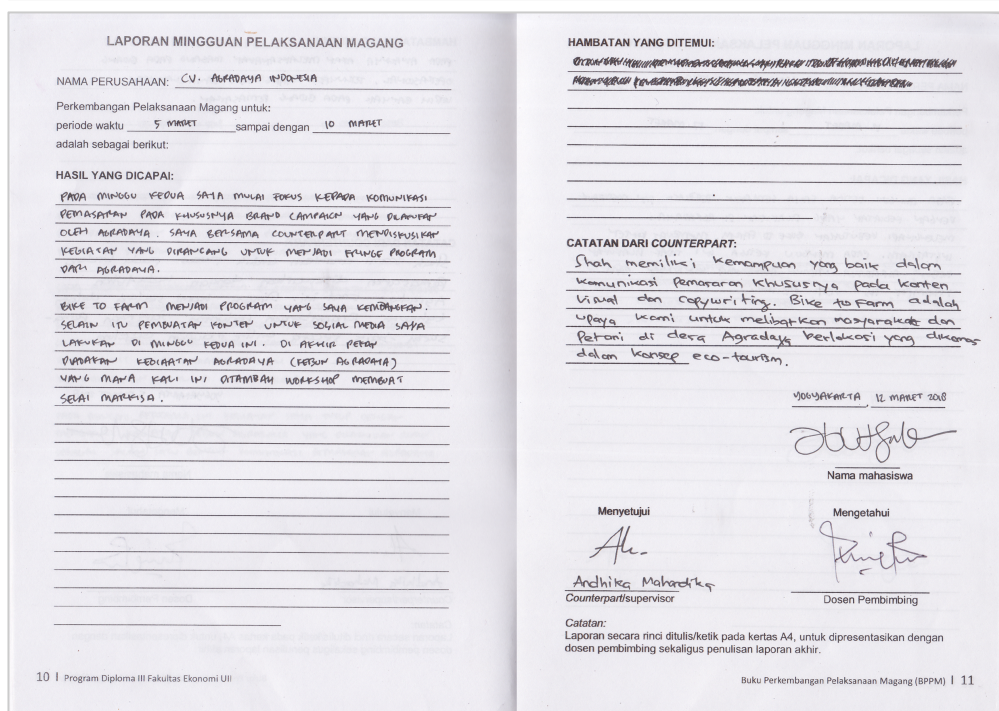 LAPORAN MINGGUAN PELAKSANAAN MAGANG
NAMA PERUSAHAAN: CV. AGRADAYA INDONESIA
Perkembangan Pelaksanaan Magang untuk:
periode waktu 5 MARET sampai dengan 10 MARET
adalah sebagai berikut:
HASIL YANG DICAPAI:
PADA MINGGU KEDUA SAYA MULAI FOKUS KEPADA KOMUNIKASI
PEMASARAN PADA KHUSUSNYA BRAND CAMPAIGN YANG DILAKUKAN
OLEH AGRADAYA. SAYA BERSAMA COUNTERPART MENDISKUSIKAN
KEGIATAN YANG DIRANCANG UNTUK MENJADI FRINGE PROGRAM
DARI AGRADAYA.
BIKE TO FARM MENJADI PROGRAM YANG SAYA KEMBANGKAN.
SELAIN ITU PEMBUATAN KONTEN UNTUK SOSIAL MEDIA SAYA
LAKUKAN DI MINGGU KEDUA INI. DI AKHIR PEKAN
DIADAKAN KEGIAATAN AGRADAYA (KEBUN AGRADAYA)
YANG MANA KALI INI DITAMBAH WORKSHOP MEMBUAT
SELAI MARKISA.
10 | Program Diploma III Fakultas Ekonomi UII
HAMBATAN YANG DITEMUI:
CATATAN DARI COUNTERPART:
Shah memiliki kemampuan yang baik dalam
komunikasi pemasaran khususnya pada konten
visual dan copywriting. Bike to Farm adalah
upaya kami untuk melibatkan masyarakat dan
Petani di desa Agradaya berlokasi yang dikemas
dalam konsep eco-tourism.
YOGYAKARTA, 12 MARET 2018
Nama mahasiswa
Menyetujui
Mengetahui
Andhika Mahardika
Counterpart/supervisor
Dosen Pembimbing
Catatan:
Laporan secara rinci ditulis/ketik pada kertas A4, untuk dipresentasikan dengan
dosen pembimbing sekaligus penulisan laporan akhir.
Buku Perkembangan Pelaksanaan Magang (BPPM) | 11